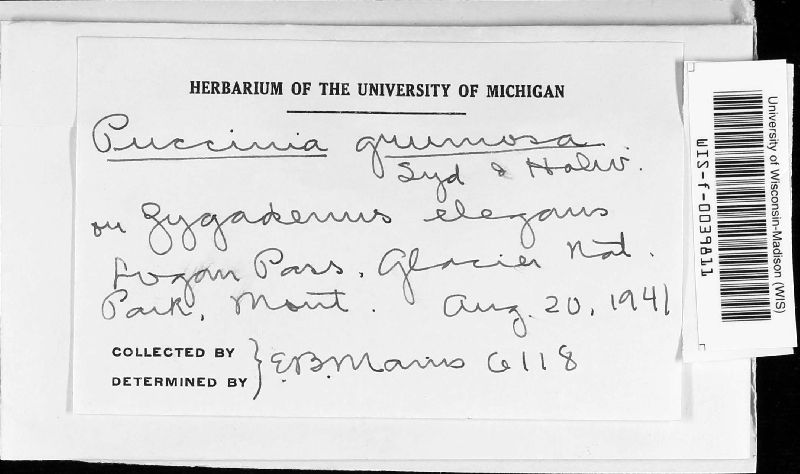 HERBARIUM OF THE UNIVERSITY OF MICHIGAN
Puccinia grumosa
Syd & Holw.
on Zygadenus elegans
Logan Pass, Glacier Nat.
Park, Mont. Aug. 20, 1941
COLLECTED BY
DETERMINED BY
E.B. Mains 6118
University of Wisconsin-Madison (WIS)
WIS-f-0039811